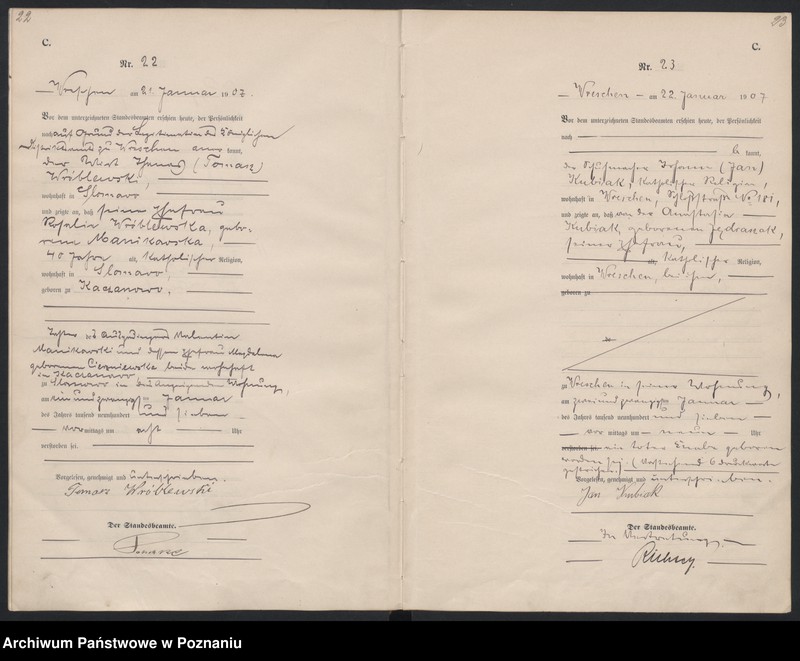 22
C.
Nr. 22
Wreschen am 21. Januar 1907.
Vor dem unterzeichneten Standesbeamten erschien heute, der Persönlichkeit
nach auf Grund der Legitimation des Königlichen
Distriktsamts zu Wreschen aner kannt,
der Wirt Thomas (Tomasz)
Wróblewski,
wohnhaft in Slomowo
und zeigte an, daß seine Ehefrau
Rosalie Wróblewska, gebo-
rene Manikowska,
40 Jahre alt, katholischer Religion,
wohnhaft in Slomowo,
geboren zu Kaczanowo,
Tochter des Auszüglers Valentin
Manikowski und dessen Ehefrau Magdalena
geborenen beide wohnhaft
in Kaczanowo
zu Slomowo in des Anzeigenden Wohnung,
am einundzwanzigsten Januar
des Jahres tausend neunhundert und sieben
vor mittags um acht Uhr
verstorben sei.
Vorgelesen, genehmigt und unterschrieben.
Tomasz Wróblewski
Der Standesbeamte.
23
C.
Nr. 23
Wreschen am 22. Januar 1907
Vor dem unterzeichneten Standesbeamten erschien heute, der Persönlichkeit
nach
be kannt,
der Schuhmacher Johann (Jan)
Kubiak, katholischer Religion,
wohnhaft in Wreschen, Schloßstraße No 181,
und zeigte an, daß von der Anastasia
Kubiak geborenen Jędraszak,
seiner Ehefrau,
alt, katholischer Religion,
wohnhaft in Wreschen, bei ihm,
geboren zu
zu Wreschen in seiner Wohnung,
am zweiundzwanzigsten Januar
des Jahres tausend neunhundert und sieben
vor mittags um neun Uhr
verstorben sei ein toter Knabe geboren
worden sei. (Vorstehend 6 Druckworte
gestrichen.)
Vorgelesen, genehmigt und unterschrieben.
Jan Kubiak
Der Standesbeamte.
In Vertretung.
Archiwum Państwowe w Poznaniu